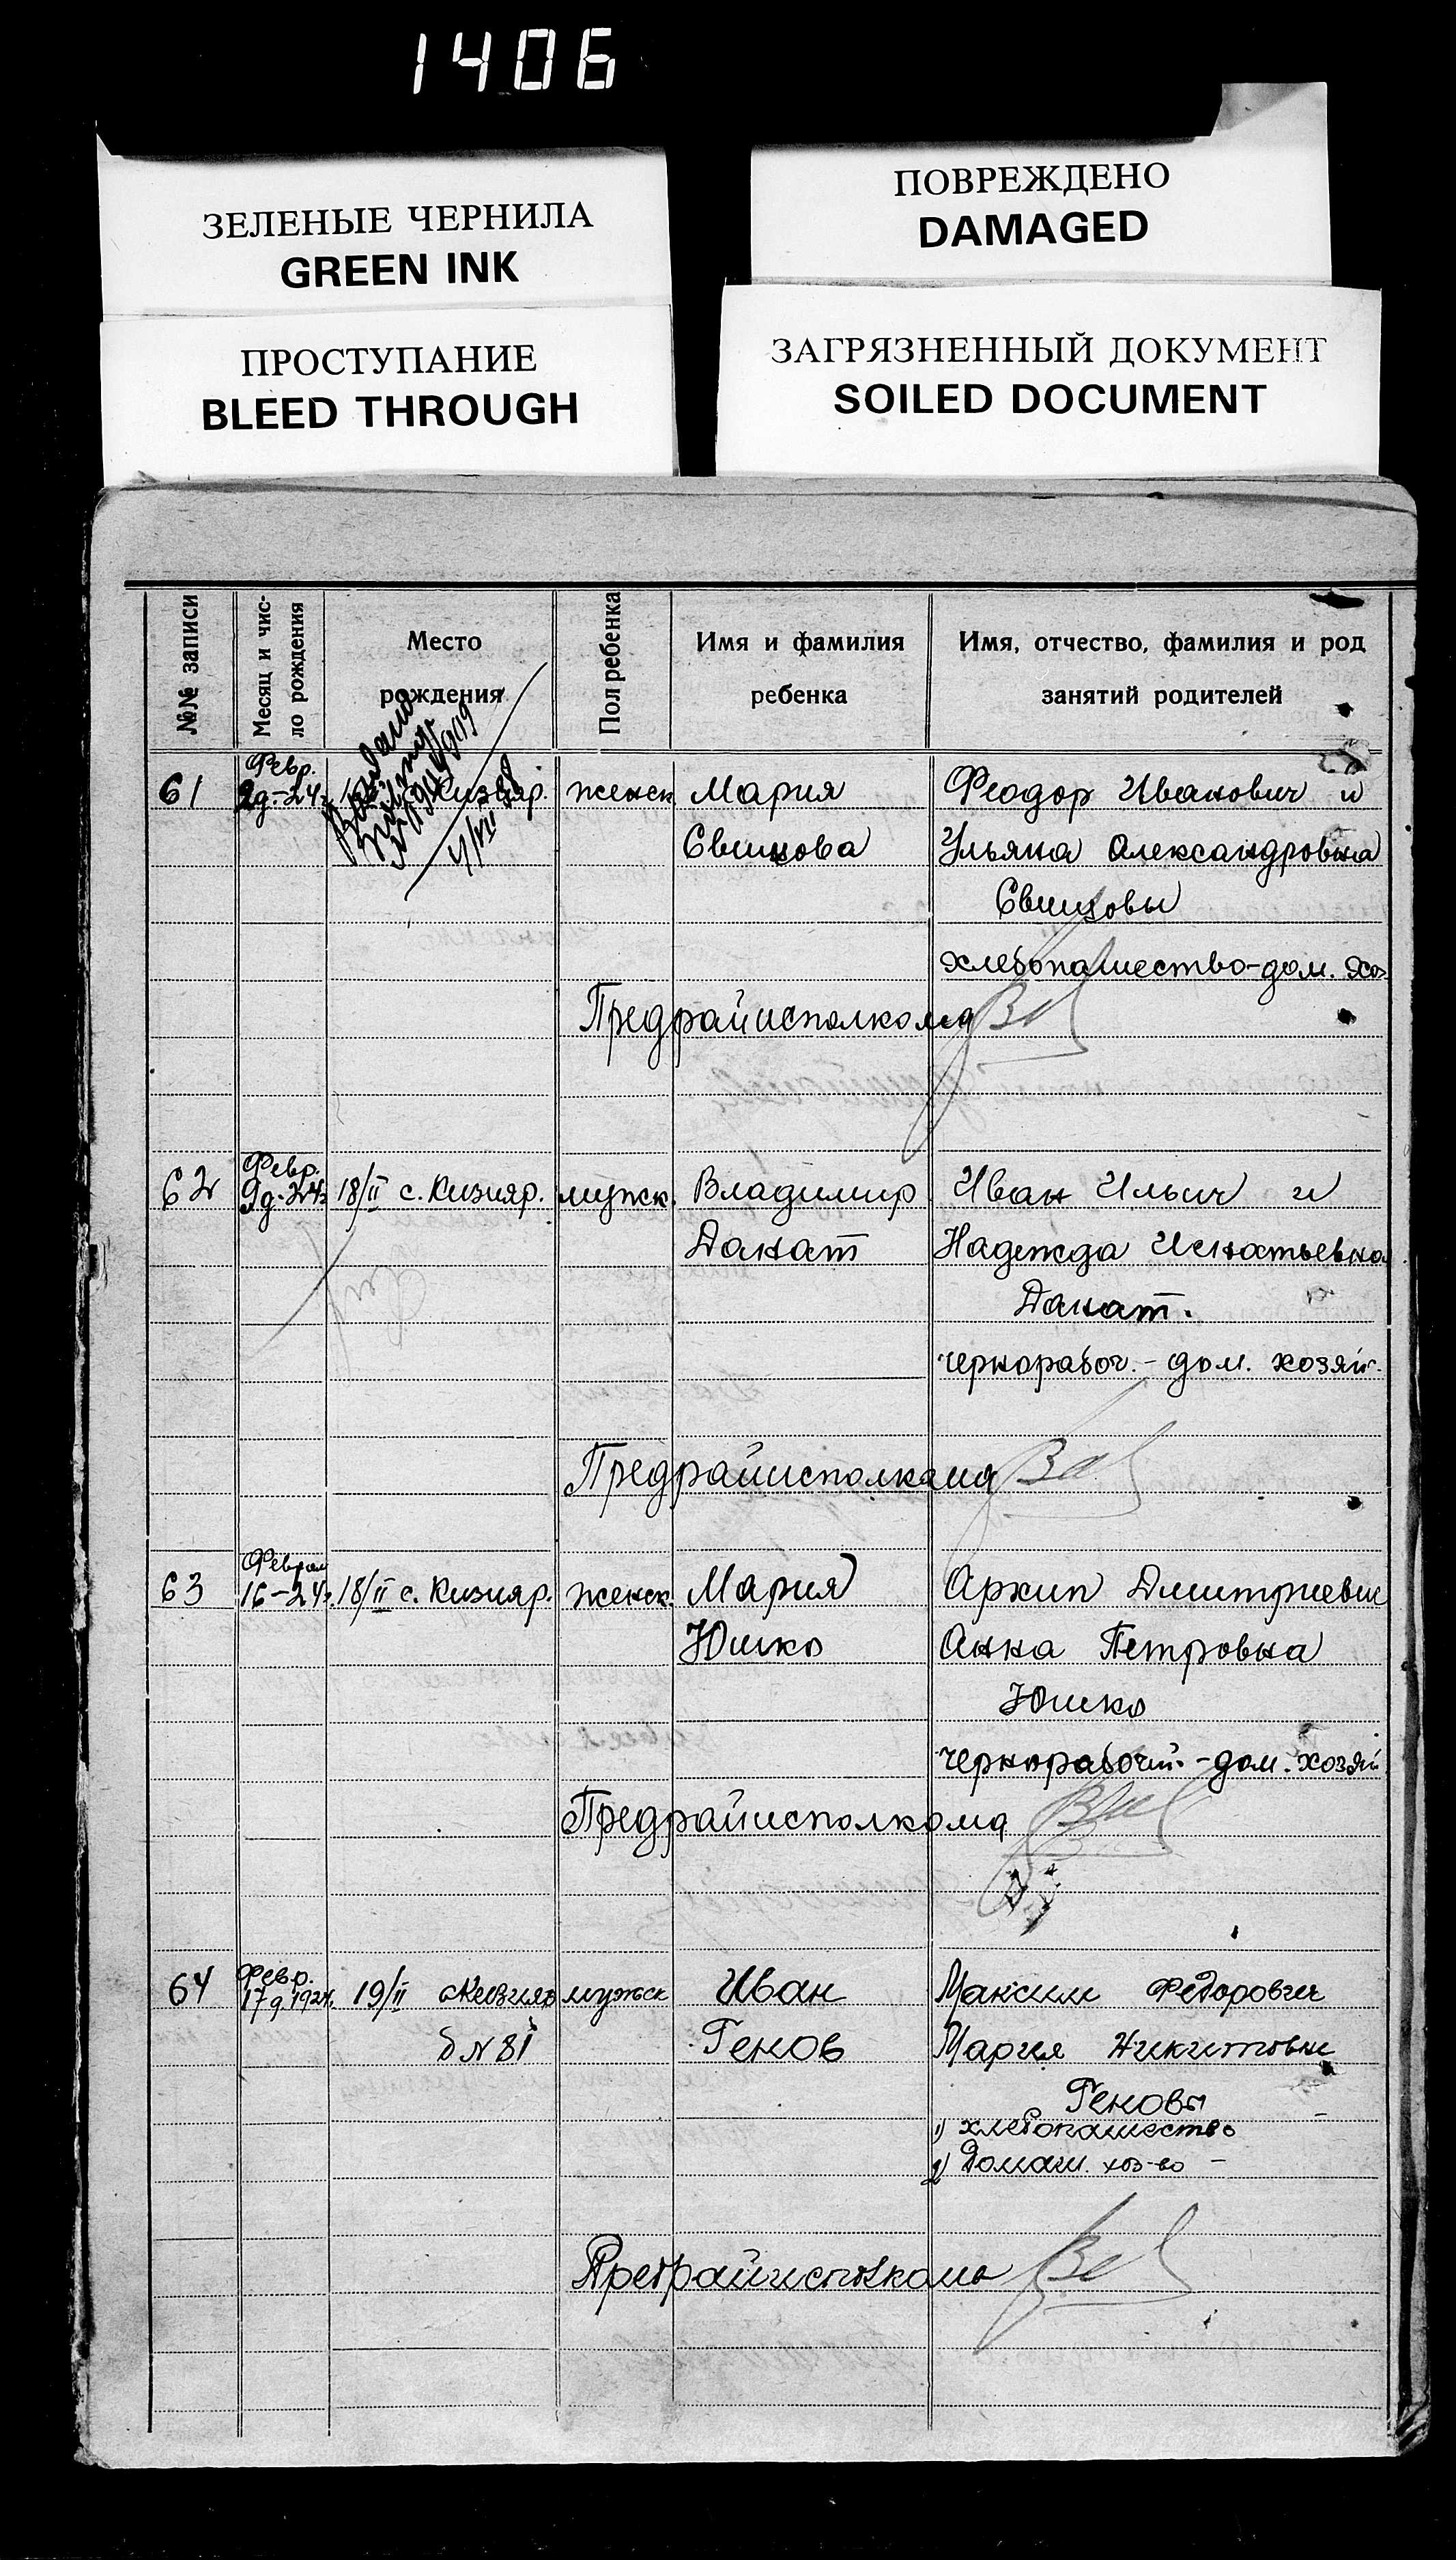 1406
ЗЕЛЕНЫЕ ЧЕРНИЛА
GREEN INK
ПРОСТУПАНИЕ
BLEED THROUGH
ПОВРЕЖДЕНО
DAMAGED
ЗАГРЯЗНЕННЫЙ ДОКУМЕНТ
SOILED DOCUMENT
№№ записи
Месяц и чис-
ло рождения
Место
рождения
Пол ребенка
Имя и фамилия
ребенка
Имя, отчество, фамилия и род
занятий родителей
Февр.
61 Кизияр. женск Мария Феодор Иванович и
Свинцова Ульяна Александровна
Свинцовы
хлебопашество-дом. хоз
Предрайисполкома
Февр.
62 9д.-24г 18/II с. Кизияр. мужск. Владимир Иван Ильич и
Данат Надежда Игнатьевна
Данат.
чернорабоч.- дом. хозяй.
Предрайисполкома
Феврал
63 16-24г. 18/II с. Кизияр. женск. Мария Архип Дмитриевич
Юшко Анна Петровна
Юшко
чернорабочий.-дом. хозяй
Предрайисполкома
Февр.
64 17д 1924. 19/II с.Кизияр мужск Иван Максим Федорович
б N 81 Генов Мария Никитовна
Геновы
1) хлебопашество
2) Домаш. хоз-во -
Предрайисполкома